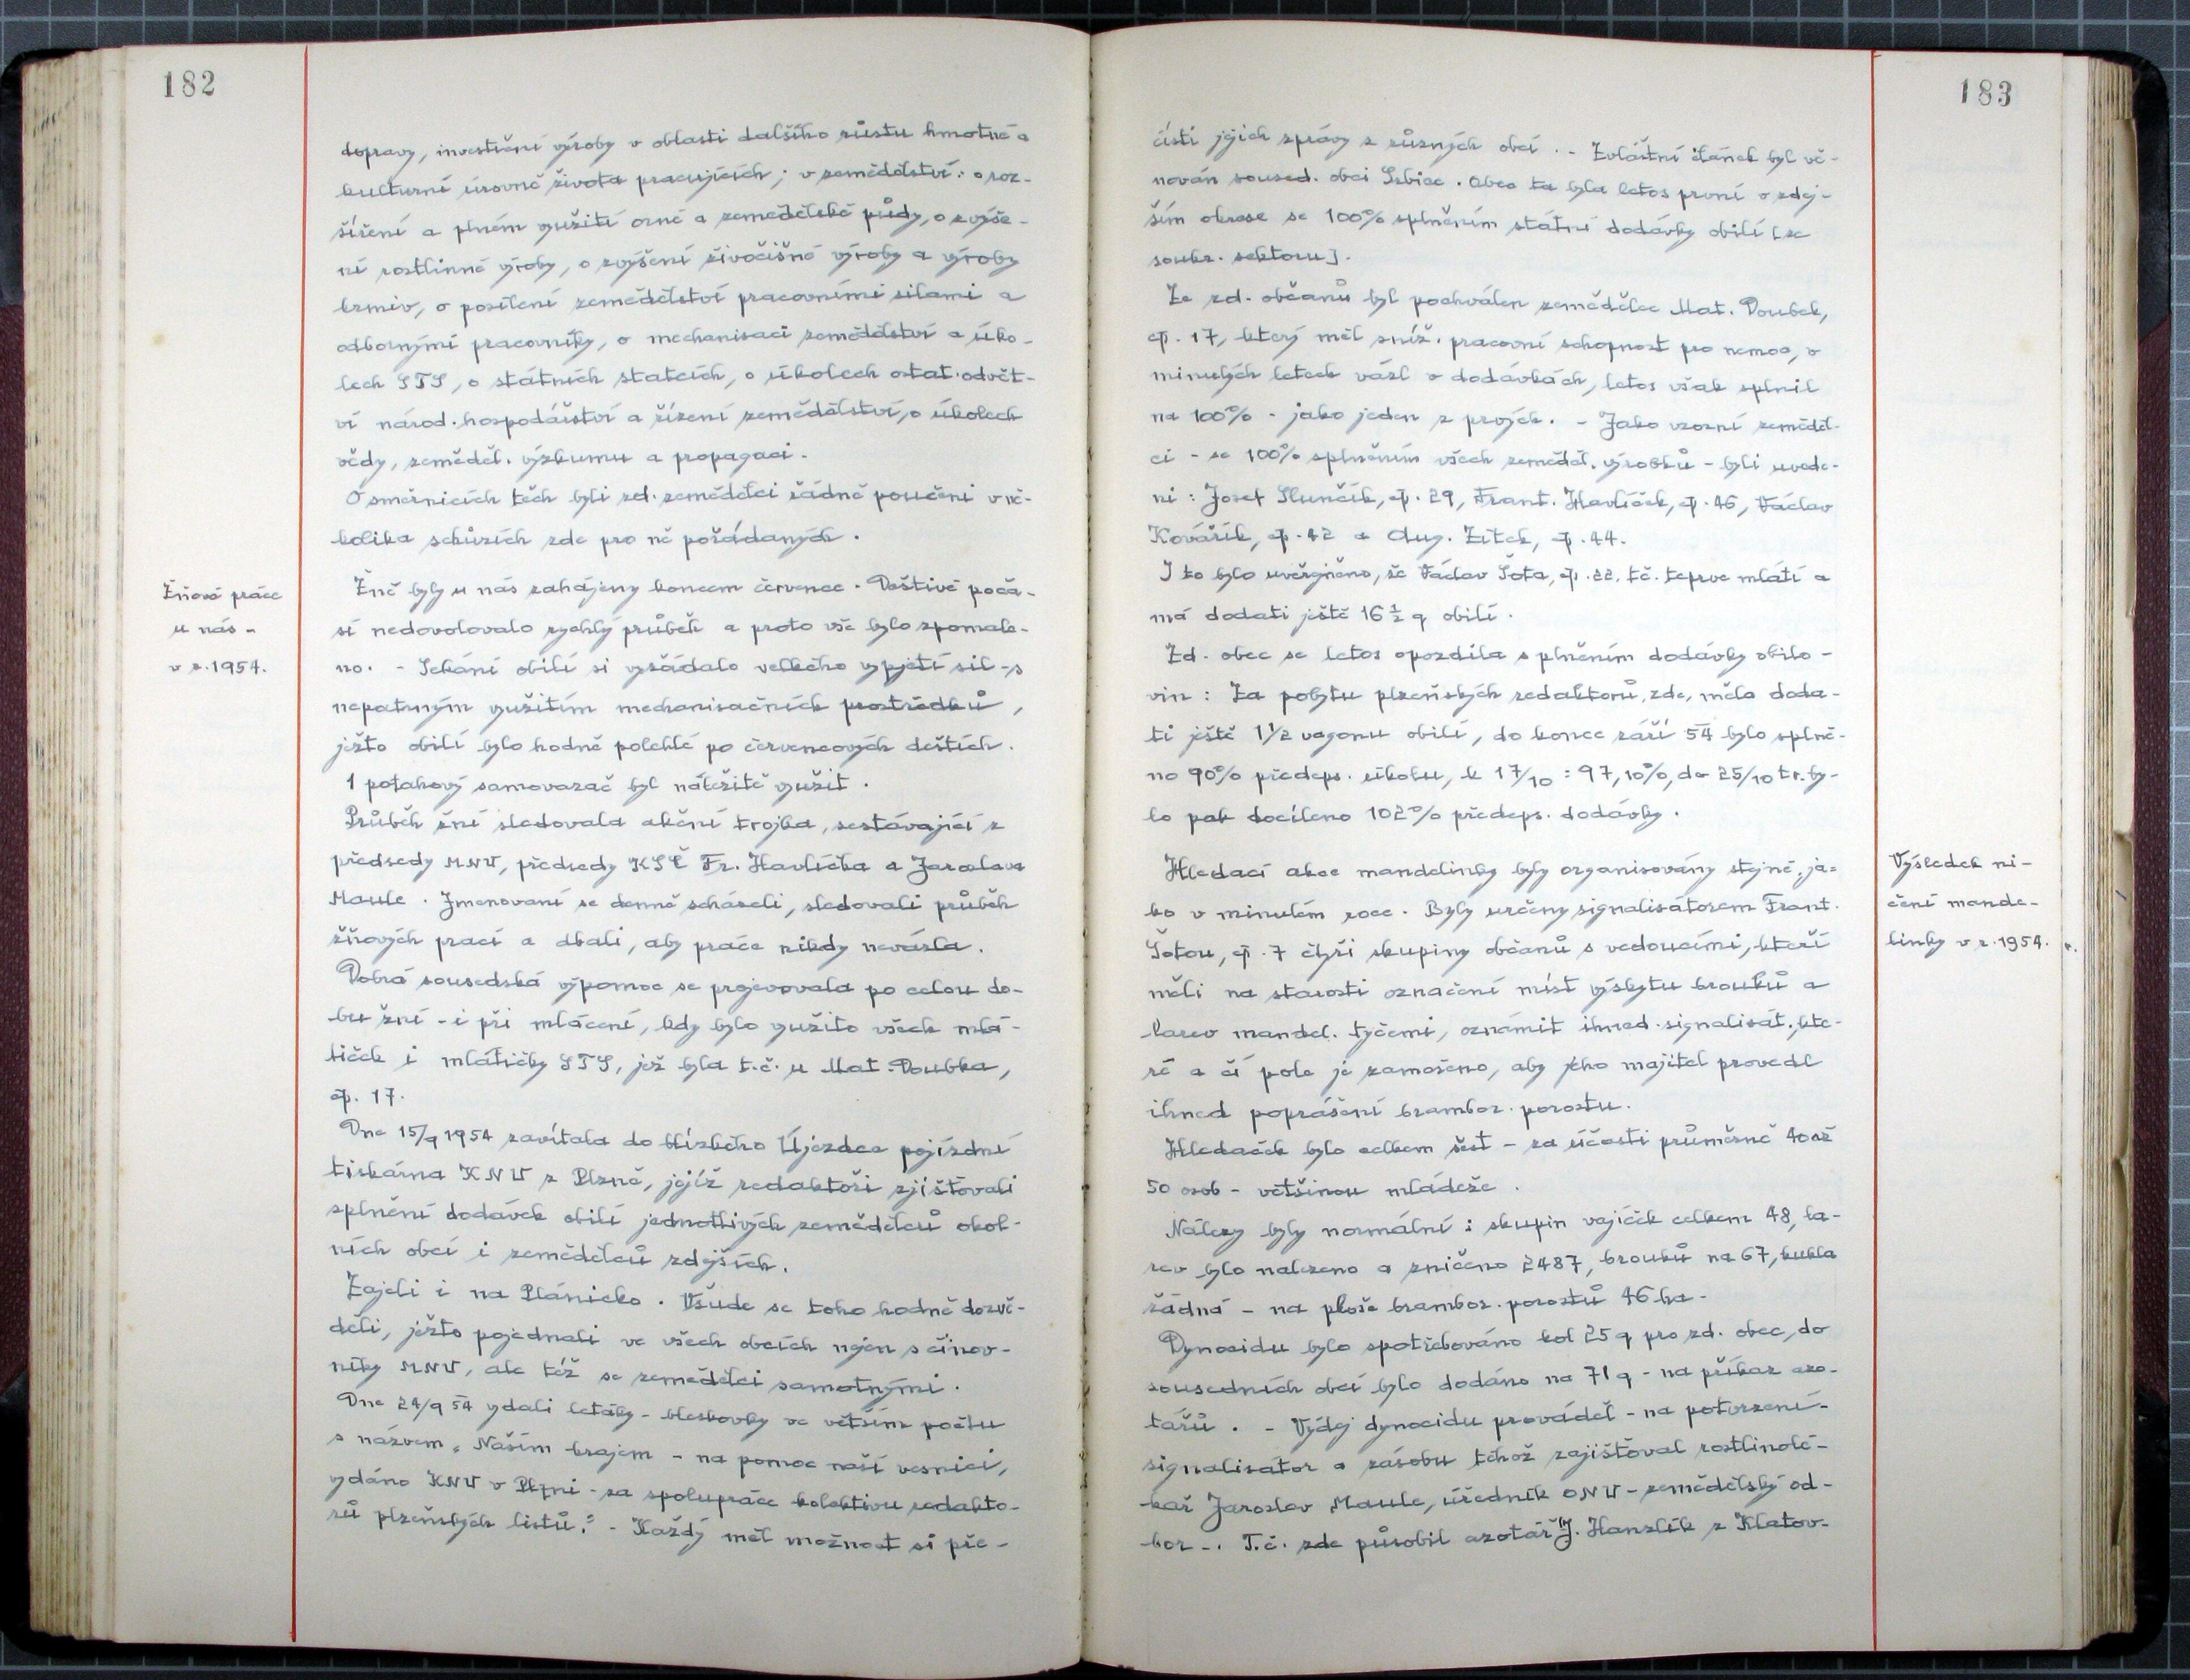 182
dopravy, investiční výroby v oblasti dalšího růstu hmotné a
kulturní úrovně života pracujících; v zemědělství: o roz-
šíření a plném využití orné a zemědělské půdy, o zvýše-
ní rostlinné výroby, o zvýšení živočišné výroby a výroby
krmiv, o posílení zemědělství pracovními silami a
odbornými pracovníky, o mechanisaci zemědělství a úko-
lech STS, o státních statcích, o úkolech ostat. odvět-
ví národ. hospodářství a řízení zemědělství, o úkolech
vědy, zeměděl. výzkumu a propagaci.
O směrnicích těch byli zd. zemědělci řádně poučeni v ně-
kolika schůzích zde pro ně pořádaných.
Žňové práce
u nás -
v r. 1954.
Žně byly u nás zahájeny koncem července. Deštivé poča-
sí nedovolovalo rychlý průběh a proto vše bylo zpomale-
no. - Sekání obilí si vyžádalo velkého vypjetí sil - s
nepatrným využitím mechanisačních prostředků,
ježto obilí bylo hodně polehlé po červencových deštích.
1 potahový samovazač byl náležitě využit.
Průběh žní sledovala akční trojka, sestávající z
předsedy MNV, předsedy KSČ Fr. Havlíčka a Jaroslava
Maule. Jmenovaní se denně scházeli, sledovali průběh
žňových prací a dbali, aby práce nikdy nevázla.
Dobrá sousedská výpomoc se projevovala po celou do-
bu žní - i při mlácení, kdy bylo využito všech mlá-
tiček i mlátičky STS, jež byla t.č. u Mat. Doubka,
čp. 17.
Dne 15/9 1954 zavítala do blízkého Újezdce pojízdní
tiskárna KNV z Plzně, jejíž redaktoři zjišťovali
splnění dodávek obilí jednotlivých zemědělců okol-
ních obcí i zemědělců zdejších.
Zajeli i na Plánicko. Všude se toho hodně dozvě-
děli, ježto pojednali ve všech obcích nejen s činov-
níky MNV, ale též se zemědělci samotnými.
Dne 24/9 54 vydali letáky - bleskovky ve větším počtu
s názvem „Naším krajem - na pomoc naší vesnici,
vydáno KNV v Plzni - za spolupráce kolektivu redakto-
rů plzeňských listů." - Každý měl možnost si pře-
183
čísti jejich zprávy z různých obcí. - Zvláštní článek byl vě-
nován soused. obci Srbice. Obec ta byla letos první v zdej-
ším okrese se 100% splněním státní dodávky obilí [ze
soukr. sektoru].
Ze zd. občanů byl pochválen zemědělec Mat. Doubek,
čp. 17, který měl sníž. pracovní schopnost pro nemoc, v
minulých letech vázl v dodávkách, letos však splnil
na 100% - jako jeden z prvých. - Jako vzorní zeměděl-
ci - se 100% splněním všech zeměděl. výrobků - byli uvede-
ni: Josef Slunčík, čp. 29, Frant. Havlíček, čp. 46, Václav
Kovářík, čp. 42 a Aug. Zítek, čp. 44.
I to bylo uveřejněno, že Václav Šota, čp. 22, tč. teprve mlátí a
má dodati ještě 16 ½ q obilí.
Zd. obec se letos opozdila s plněním dodávky obilo-
vin: Za pobytu plzeňských redaktorů, zde, měla doda-
ti ještě 1 1/2 vagonu obilí, do konce září 54 bylo splně-
no 90% předeps. úkolu, k 17/10: 97,10%, do 25/10 t.r. by-
lo pak docíleno 102% předeps. dodávky.
Výsledek ni-
čení mande-
linky v r. 1954.
Hledací akce mandelinky byly organisovány stejně, ja-
ko v minulém roce. Byly určeny signalisátorem Frant.
Šotou, čp. 7 čtyři skupiny občanů s vedoucími, kteří
měli na starosti označení míst výskytu brouků a
larev mandel. tyčemi, oznámit ihned signalisát., kte-
ré a čí pole je zamořeno, aby jeho majitel provedl
ihned poprášení brambor. porostu.
Hledaček bylo celkem šest - za účasti průměrně 40 až
50 osob - většinou mládeže.
Nálezy byly normální: skupin vajíček celkem 48, la-
rev bylo nalezeno a zničeno 2487, brouků na 67, kukla
žádná - na ploše brambor. porostů 46 ha.
Dynocidu bylo spotřebováno kol 25 q pro zd. obec, do
sousedních obcí bylo dodáno na 71 q - na příkaz azo-
tářů. - Výdej dynocidu prováděl - na potvrzení -
signalisátor a zásobu téhož zajišťoval rostlinolé-
kař Jaroslav Maule, úředník ONV - zemědělský od-
bor -. T.č. zde působil azotář J. Hanzlík z Klatov-